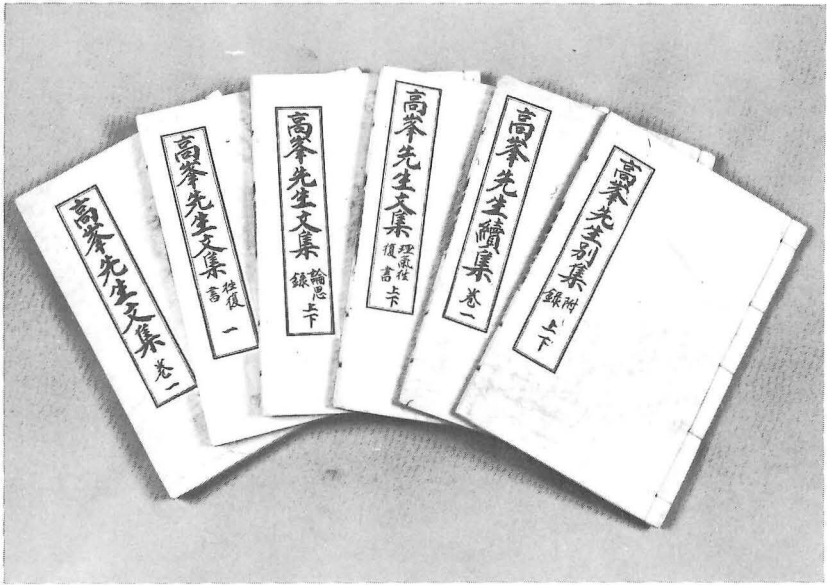 高峯先生文集 卷一
高峯先生文集 往復書 一
高峯先生文集 論思錄 上下
高峯先生文集 理氣往復書 上下
高峯先生續集 卷一
高峯先生別集 附錄 上下